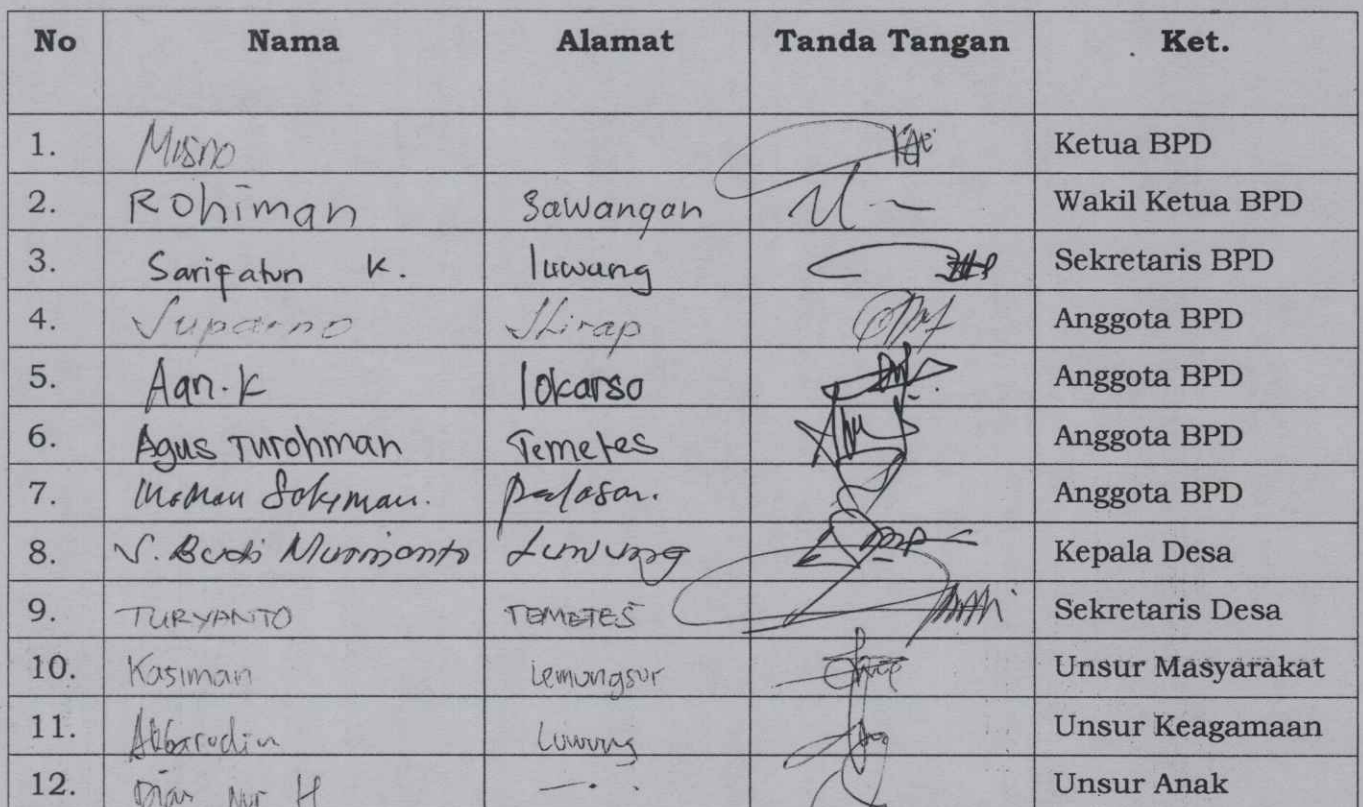 No Nama Alamat Tanda Tangan Ket.
1. Misno Ketua BPD
2. Rohiman Sawangan Wakil Ketua BPD
3. Sarifatun K. luwung Sekretaris BPD
4. Suparno Anggota BPD
5. Aan.K lokarso Anggota BPD
6. Agus Turohman Temetes Anggota BPD
7. Anggota BPD
8. Budi Luwung Kepala Desa
9. TURYANTO TEMETES Sekretaris Desa
10. Kasiman Lemungsur Unsur Masyarakat
11. Akbarudin Luwung Unsur Keagamaan
12. Nur H Unsur Anak